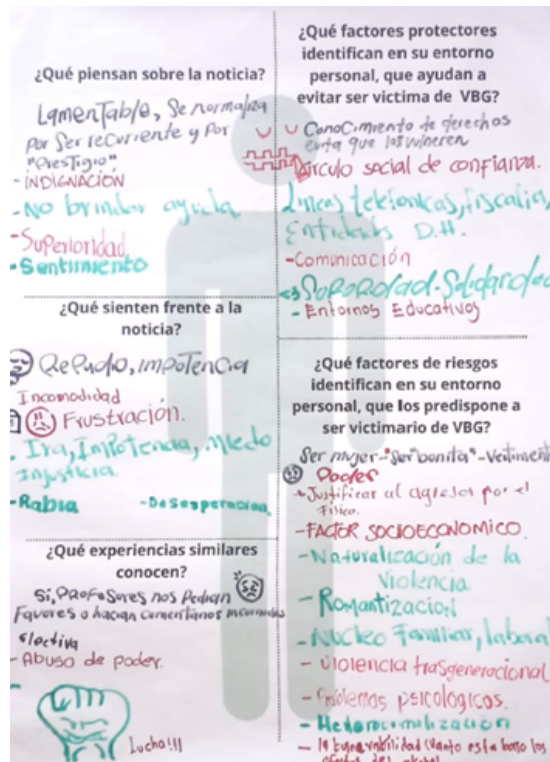 ¿Qué piensan sobre la noticia?
Lamentable, Se normaliza
Por Ser recurente y Por
"Prestigio"
- INDIGNACIÓN
- NO brindar ayuda
- Superioridad
- Sentimiento
¿Qué sienten frente a la
noticia?
Repudio, impotencia
Incomodidad
Frustración.
- Ira, Impotencia, miedo
Injusticia.
- Rabia - Desesperacion
¿Qué experiencias similares
conocen?
Si, Profesores nos Pedian
Favores o hacian comentarios incomodos
electiva
- Abuso de poder.
Lucha!!!
¿Qué factores protectores
identifican en su entorno
personal, que ayudan a
evitar ser victima de VBG?
Conocimiento de derechos
evita que los
Circulo social de confianza.
Lineas telefonicas, fiscalia,
Entidades D.H.
- Comunicación
Solidaridad
- Entornos Educativos
¿Qué factores de riesgos
identifican en su entorno
personal, que los predispone a
ser victimario de VBG?
Ser mujer - "Ser bonita" -
Poder
Justificar al agresor por el
Fisico.
- FACTOR SOCIOECONOMICO.
- Naturalización de la
Violencia
- Romantizacion
- Núcleo Familiar, laboral
- violencia trasgeneracional
- Problemas psicológicos.
- la cuanto esta bajo los
efectos del alcohol